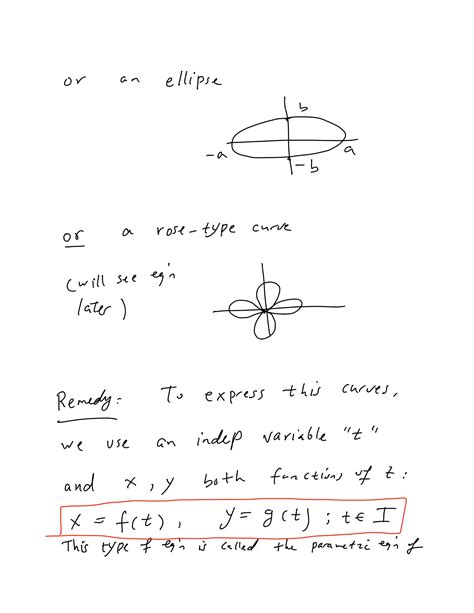 or an ellipse
b
-a
a
-b
or a rose-type curve
(will see eq'n
later)
Remedy: To express this curves,
we use an indep variable "t"
and x, y both functions of t:
x = f(t), y = g(t) ; t ∈ I
This type of eq'n is called the parametric eq'n of